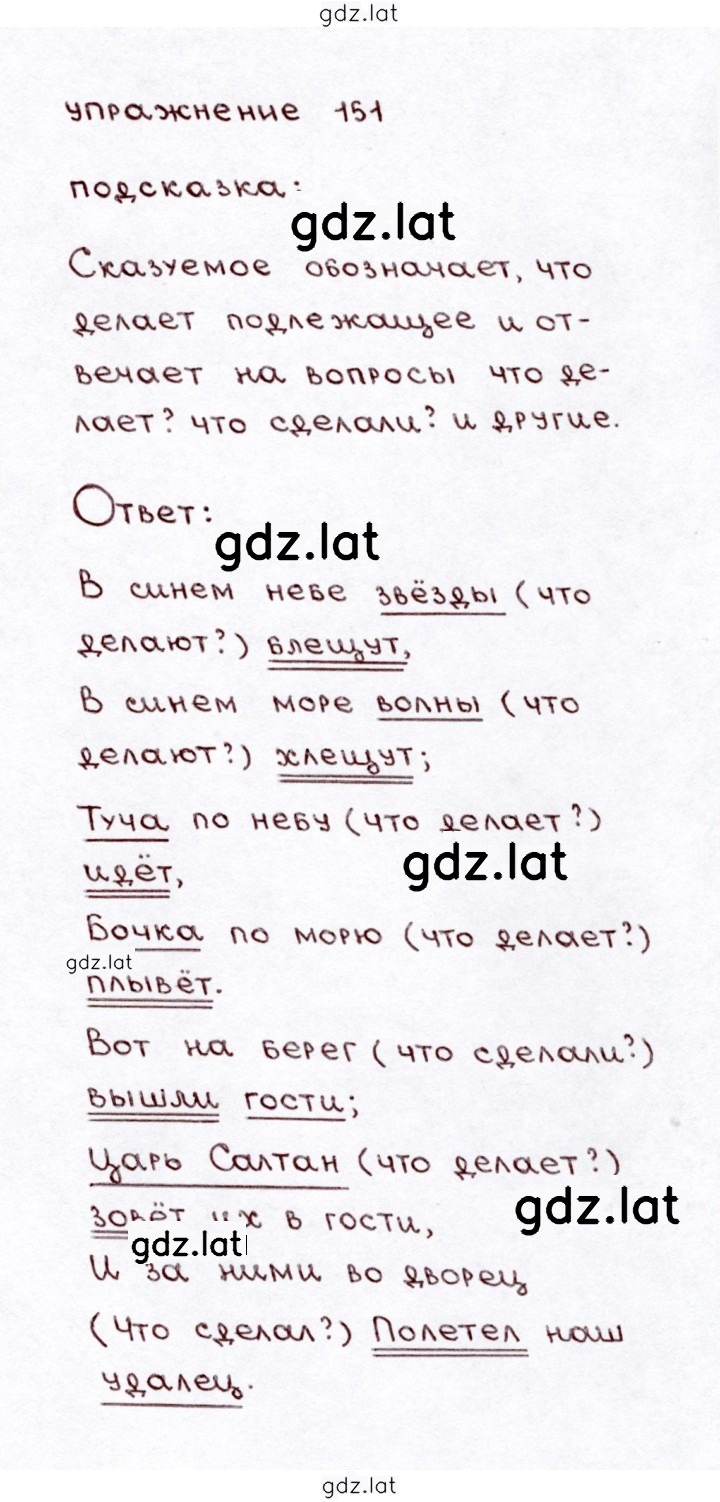 gdz.lat
упражнение 151
подсказка:
gdz.lat
Сказуемое обозначает, что
делает подлежащее и от-
вечает на вопросы что де-
лает? что сделали? и другие.
Ответ:
gdz.lat
В синем небе звёзды (что
делают?) блещут,
В синем море волны (что
делают?) хлещут;
Туча по небу (что делает?)
gdz.lat
идёт,
Бочка по морю (что делает?)
gdz.lat
плывёт.
Вот на берег (что сделали?)
вышли гости;
Царь Салтан (что делает?)
gdz.lat
зовёт их в гости,
gdz.lat
И за ними во дворец
(Что сделал?) Полетел наш
удалец.
gdz.lat